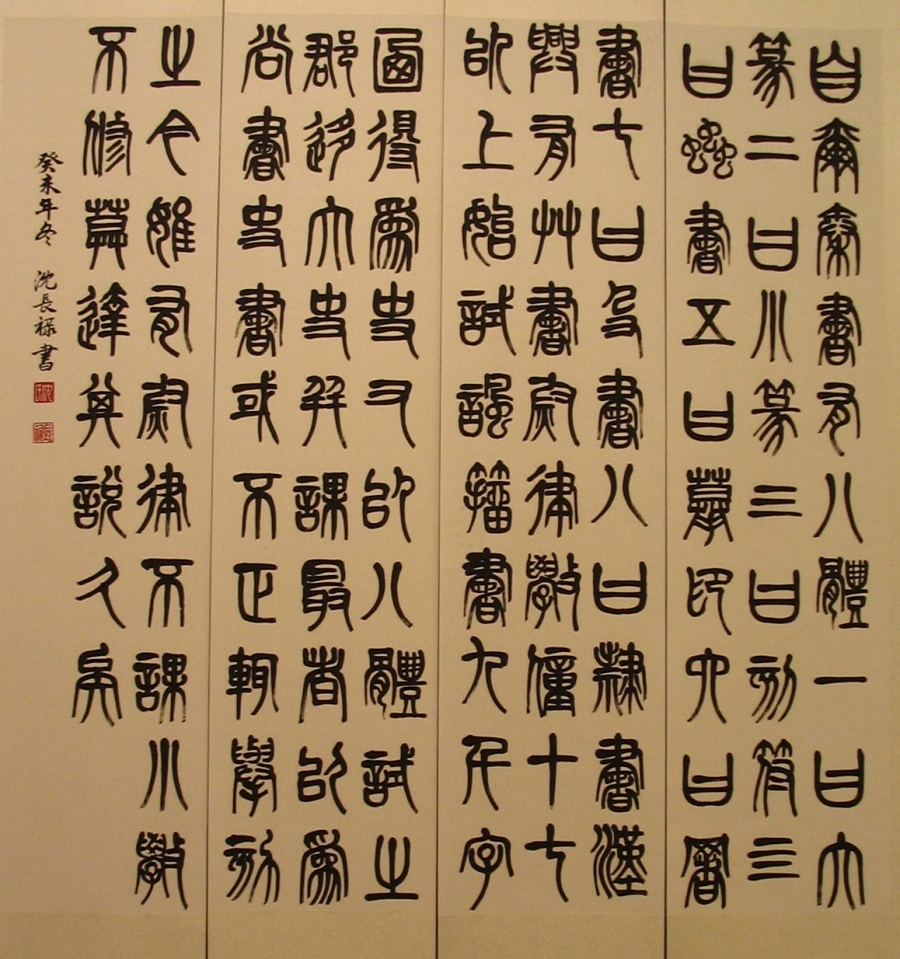 自爾秦書有八體一曰大
篆二曰小篆三曰刻符四
曰蟲書五曰摹印六曰署
書七曰殳書八曰隸書漢
興有艸書尉律斆僮十七
以上始試諷籀書九千字
迺得爲吏又以八體試之
郡移大史并課最者以爲
尚書史書或不正輒舉劾
之今雖有尉律不課小斆
不修莫達其說久矣
癸未年冬 沈長祿書